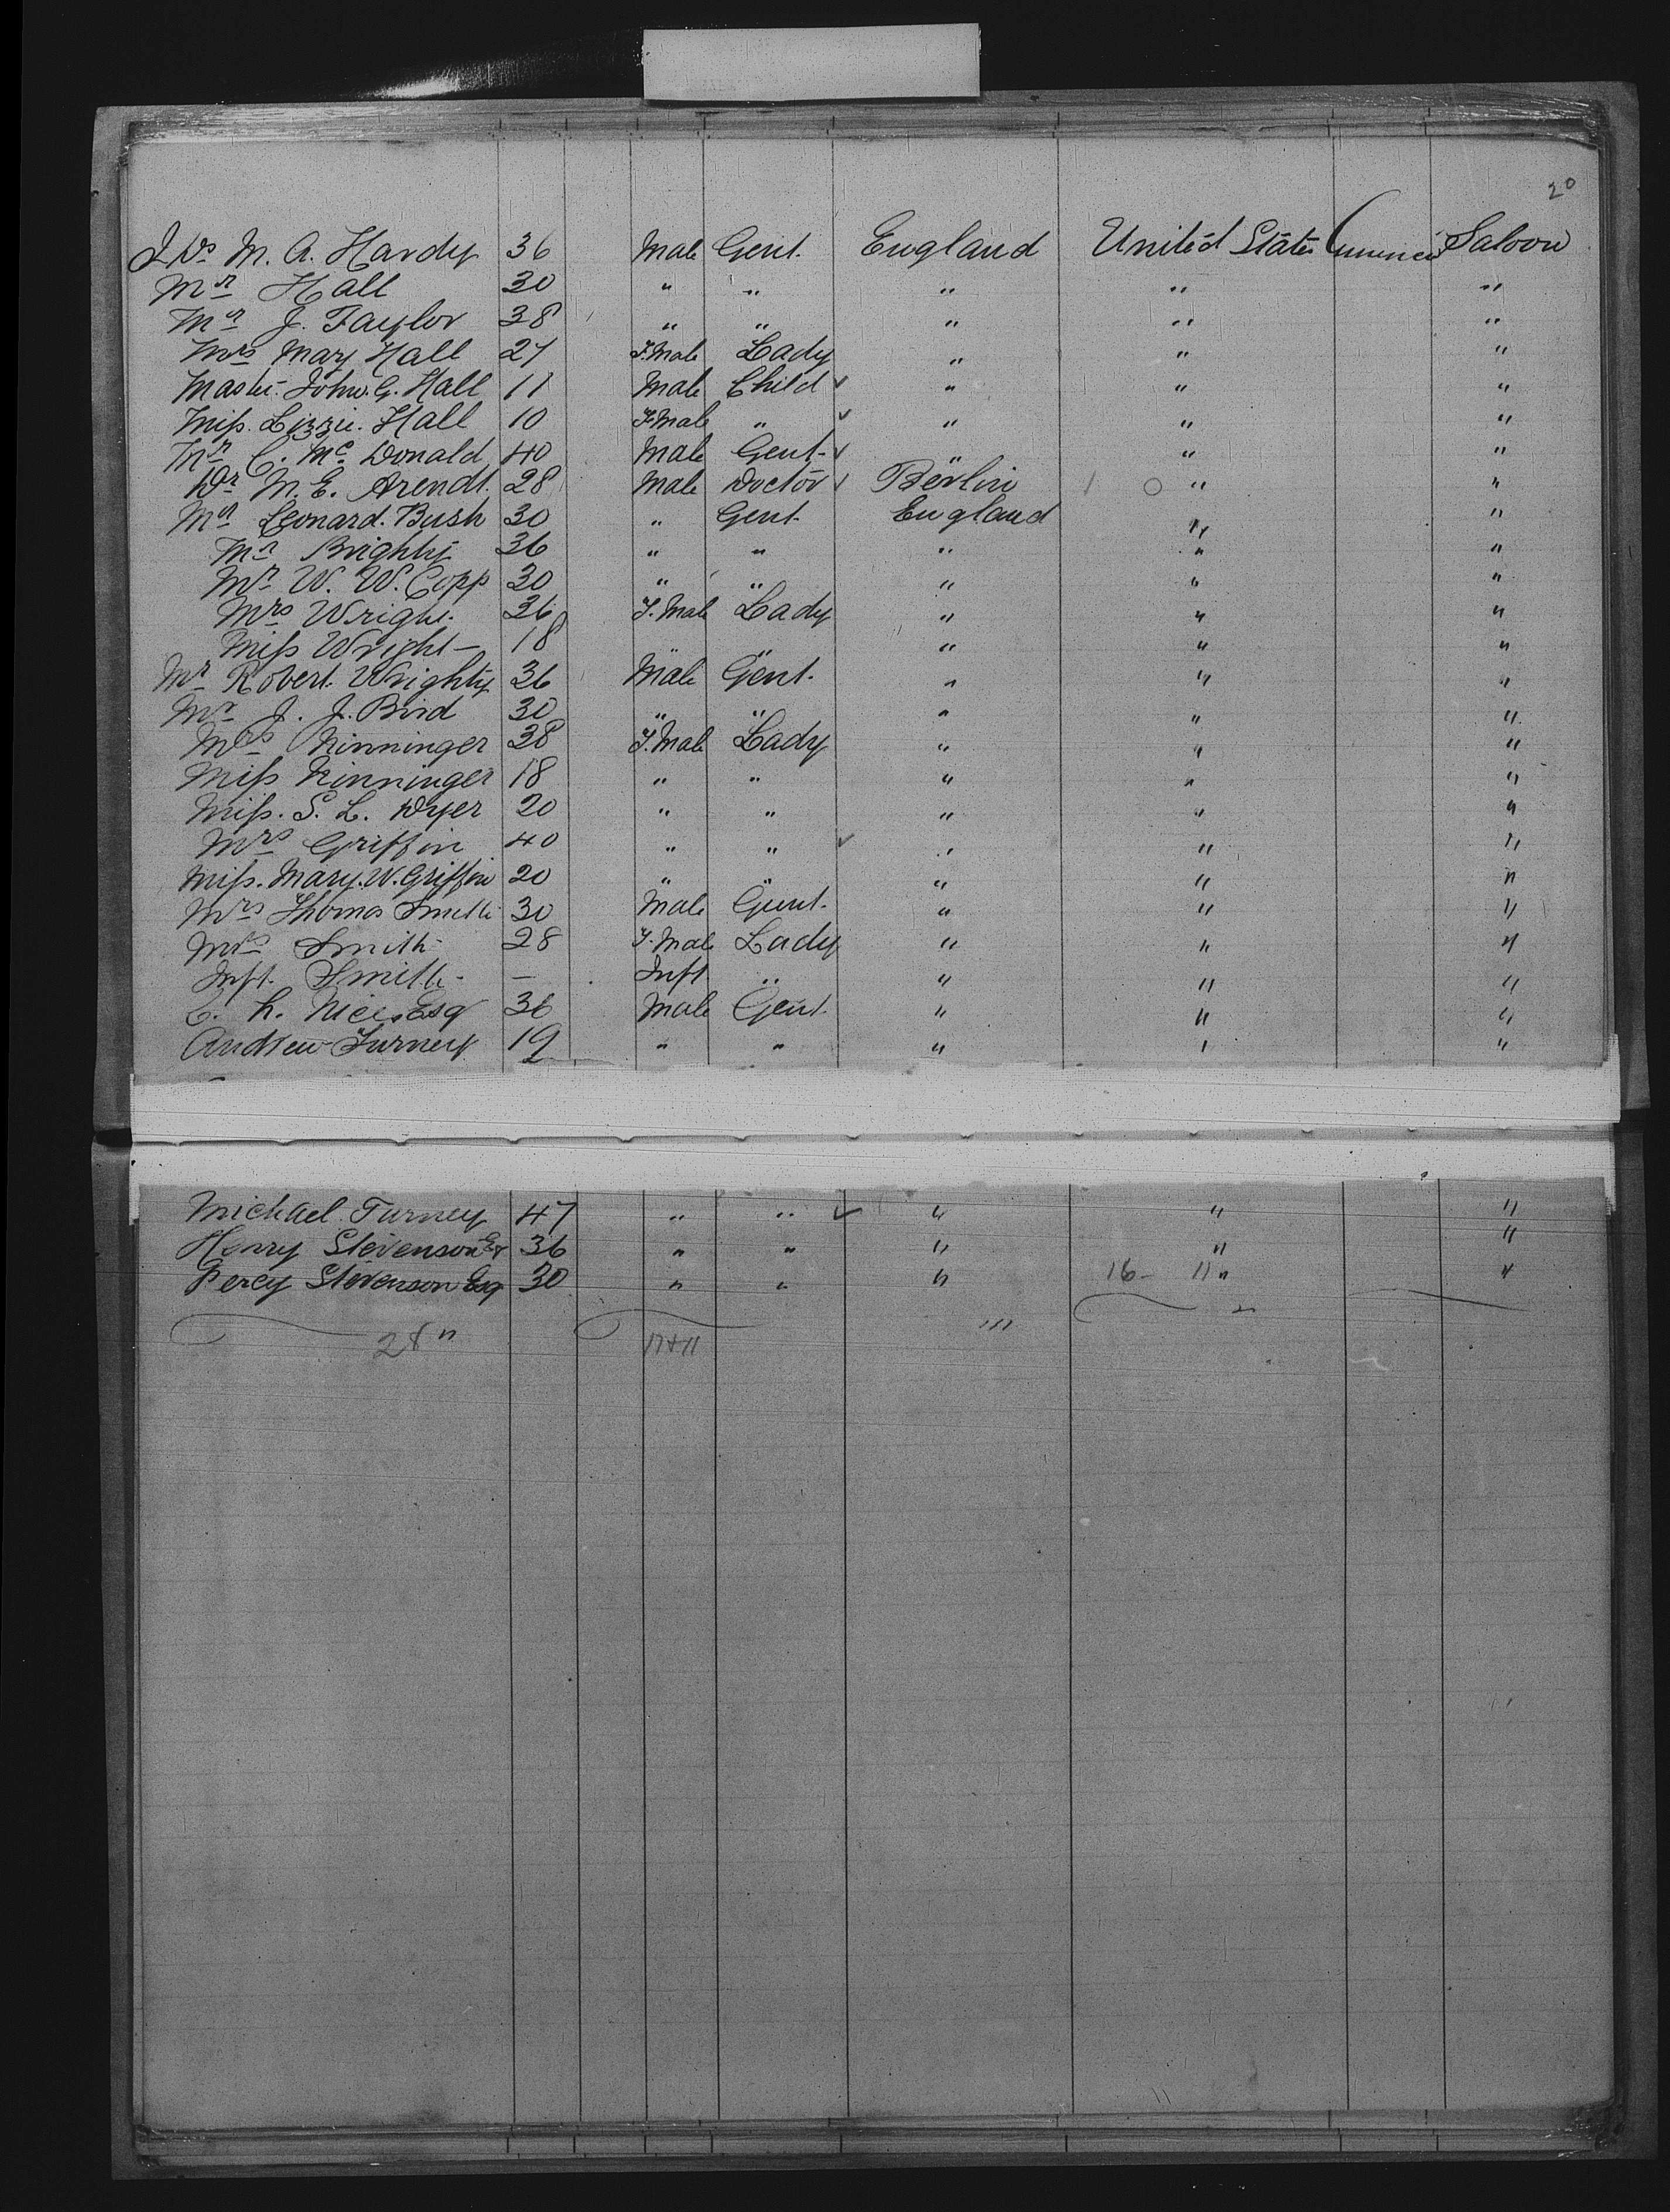 20
Drs M. A. Hardy 36 Male Gent. England United States Saloon
Mr Hall 30 " " " " "
Mr J. Taylor 38 " " " " "
Mrs Mary Hall 27 F.Male Lady " " "
Master John. G. Hall 11 Male Child " " "
Miss. Lizzie. Hall 10 F.Male " " " "
Mr C. Mc Donald 40 Male Gent- " " "
Dr M. E. Arendt. 28 Male Doctor Berlin " "
Mr Leonard. Bush 30 " Gent. England " "
Mr Brighty 36 " " " " "
Mr W. W. Copp 30 " " " " "
Mrs Wright. 36 F.Male Lady " " "
Miss Wright - 18 " " " " "
Mr Robert. Wrighty 36 Male Gent. " " "
Mr J. J. Bird 30 " " " " "
Mrs Ninninger 38 F.Male Lady " " "
Miss Ninninger 18 " " " " "
Miss. S. L. Dyer 20 " " " " "
Mrs Griffin 40 " " " " "
Miss. Mary. W. Griffin 20 " " " " "
Mrs Thomas Smith 30 Male Gent. " " "
Mrs Smith 28 F.Male Lady " " "
Inft. Smith - — Inft " " " "
C. h. Nice. Esq 36 Male Gent. " " "
Andrew Turney 19 " " " " "
Michael Turney 47 " " " " "
Henry Stevenson Er 36 " " " " "
Percy Stevenson Esq 30 " " " 16- 11 " "
28 " 17+11